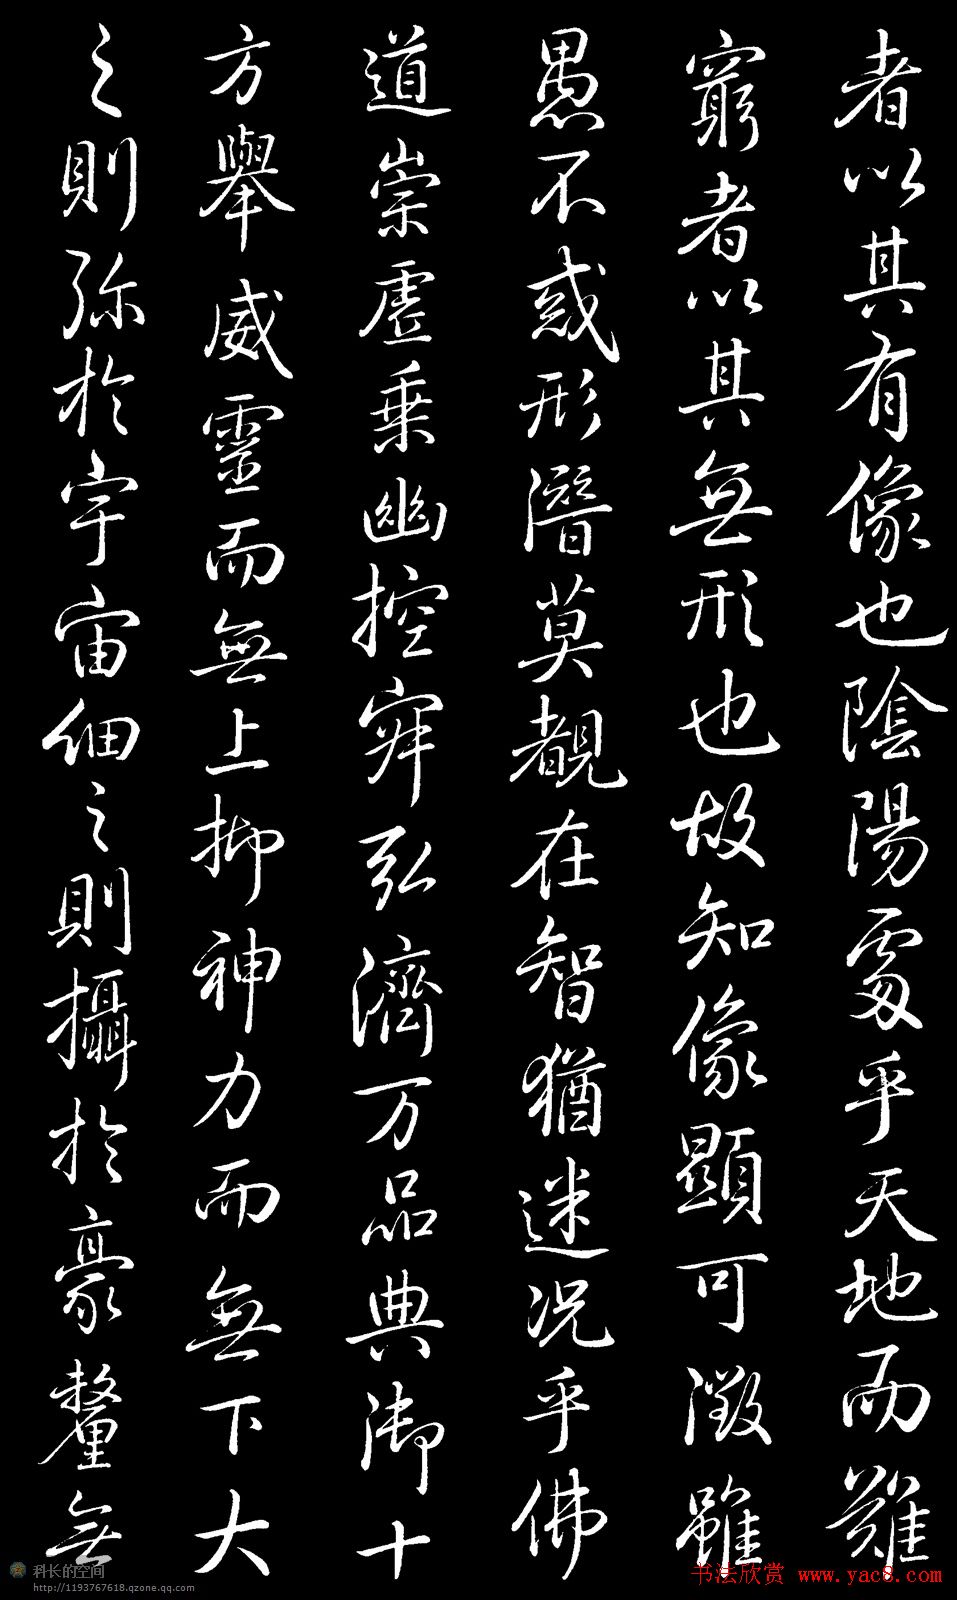 者以其有像也陰陽處乎天地而難
窮者以其無形也故知像顯可徵雖
愚不惑形潛莫覩在智猶迷況乎佛
道崇虛乗幽控寂弘濟万品典御十
方舉威靈而無上抑神力而無下大
之則弥於宇宙細之則攝於豪釐無
科长的空间
http://1193767618.qzone.qq.com
书法欣赏 www.yac8.com